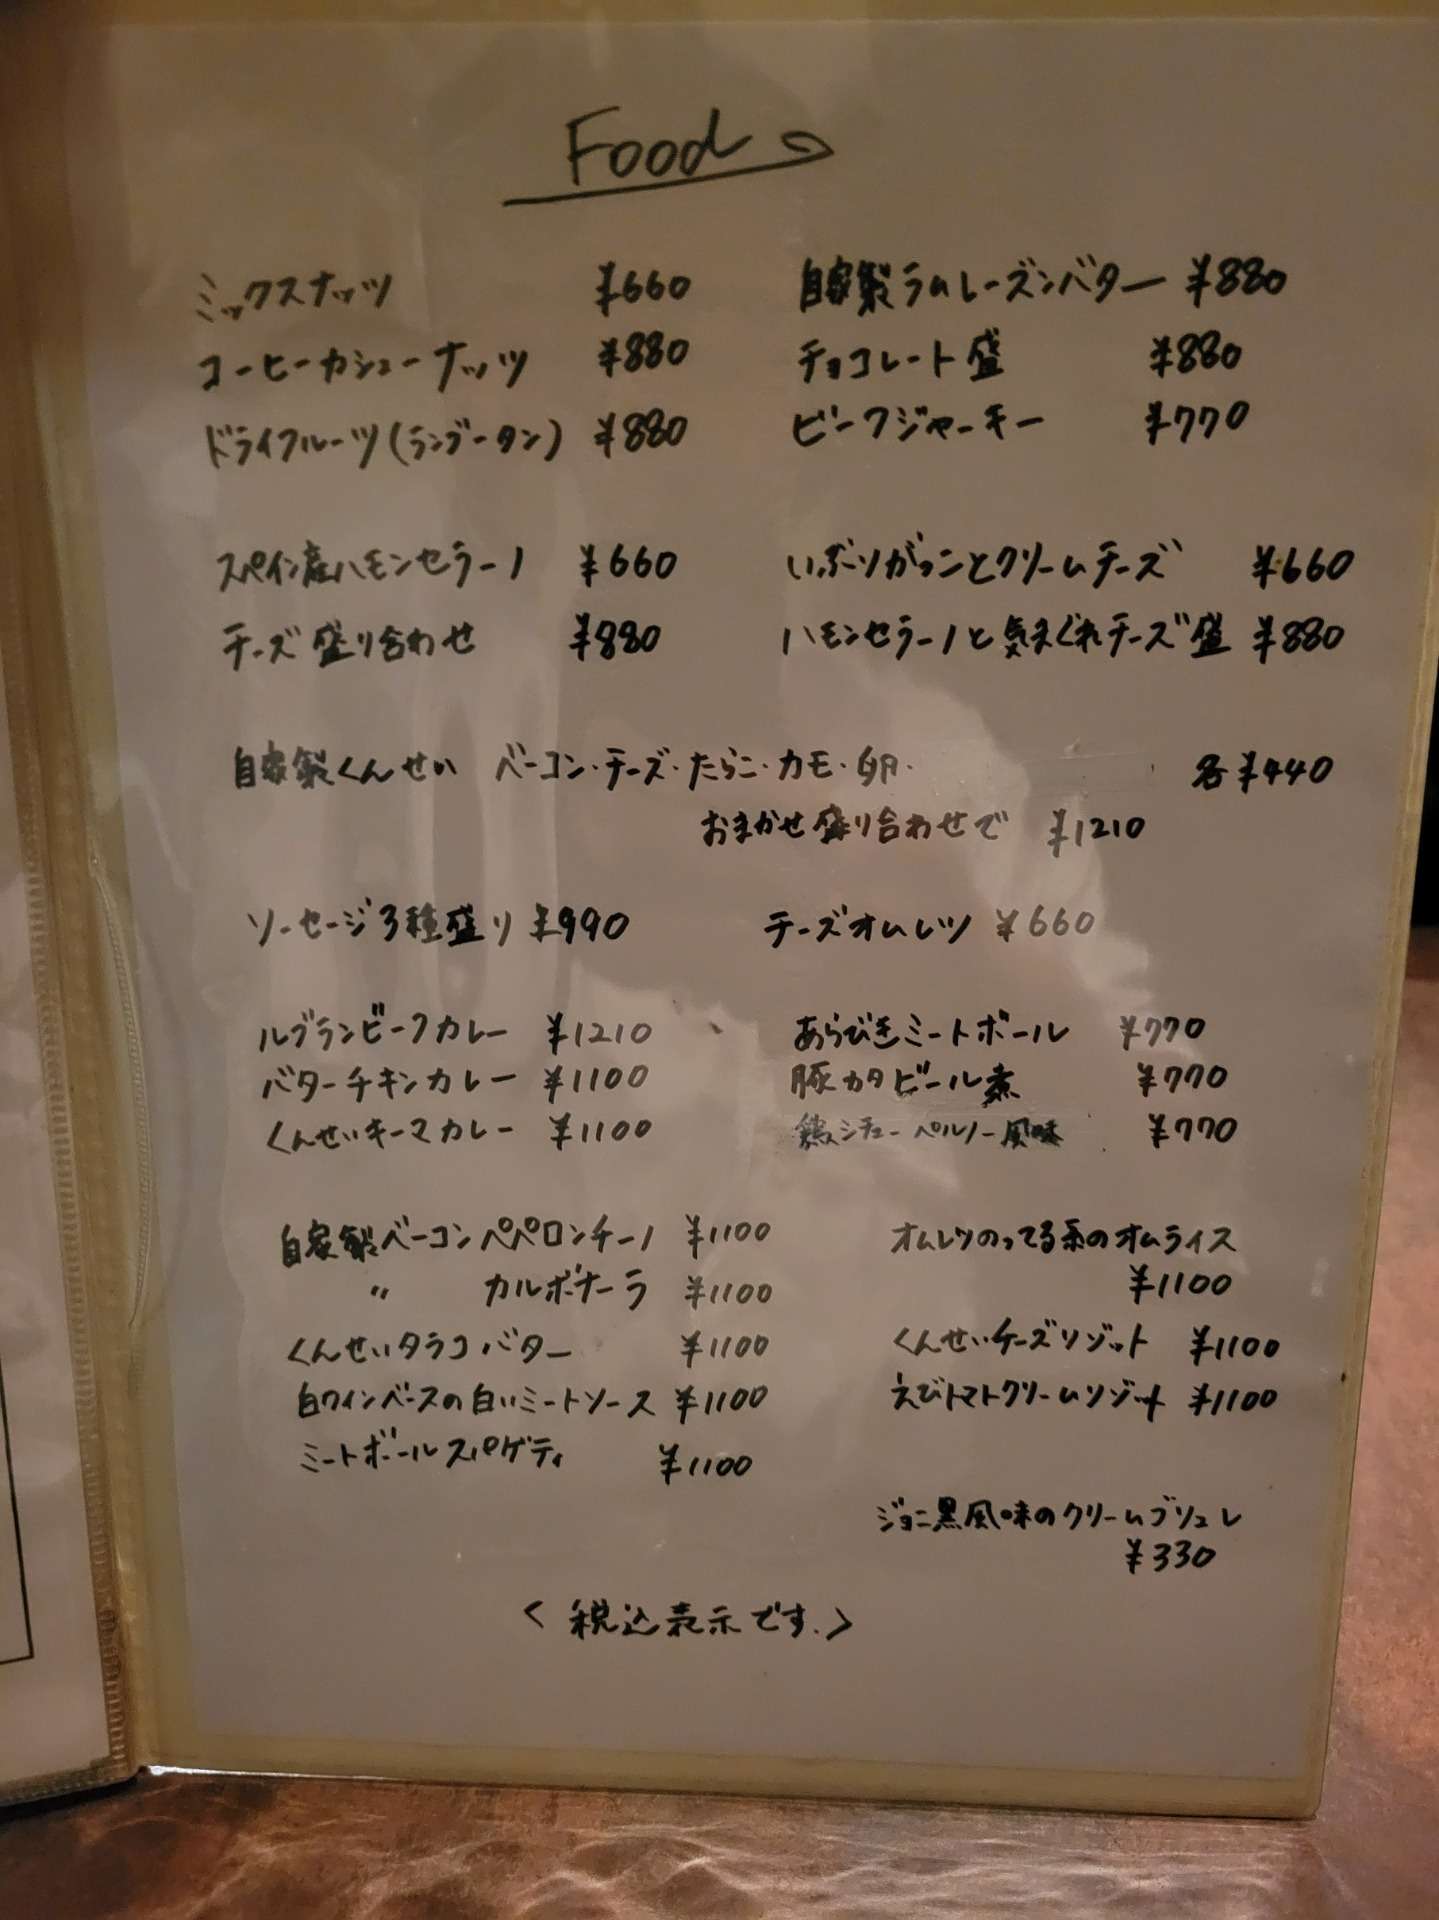 Food
ミックスナッツ ¥660
自家製ラムレーズンバター ¥880
コーヒーカシューナッツ ¥880
チョコレート盛 ¥880
ドライフルーツ(ランブータン) ¥880
ビーフジャーキー ¥770
スペイン産ハモンセラーノ ¥660
いぶりがっことクリームチーズ ¥660
チーズ盛り合わせ ¥880
ハモンセラーノと気まぐれチーズ盛 ¥880
自家製くんせい ベーコン・チーズ・たらこ・カモ・卵・ 各¥440
おまかせ盛り合わせで ¥1210
ソーセージ3種盛り ¥990
チーズオムレツ ¥660
ルブランビーフカレー ¥1210
あらびきミートボール ¥770
バターチキンカレー ¥1100
豚カタビール煮 ¥770
くんせいキーマカレー ¥1100
鶏シチューペルノー風味 ¥770
自家製ベーコンペペロンチーノ ¥1100
オムレツのってる系のオムライス
¥1100
〃 カルボナーラ ¥1100
くんせいタラコバター ¥1100
くんせいチーズリゾット ¥1100
白ワインベースの白いミートソース ¥1100
えびトマトクリームリゾット ¥1100
ミートボールスパゲティ ¥1100
ジョニ黒風味のクリームブリュレ
¥330
<税込表示です.>